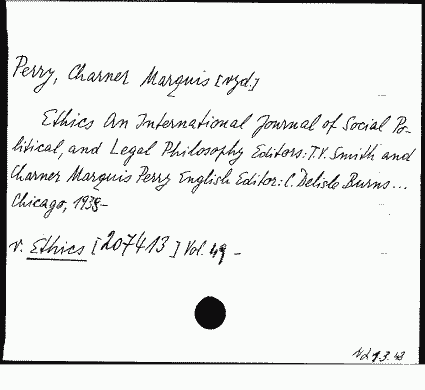 Perry, Charner Marquis [vyd.]
Ethics An International Journal of Social Po-
litical, and Legal Philosophy Editors: T.V. Smith and
Charner Marquis Perry English Editor: C. Delisle Burns...
Chicago, 1938-
v. Ethics [207413] Vol. 49 -